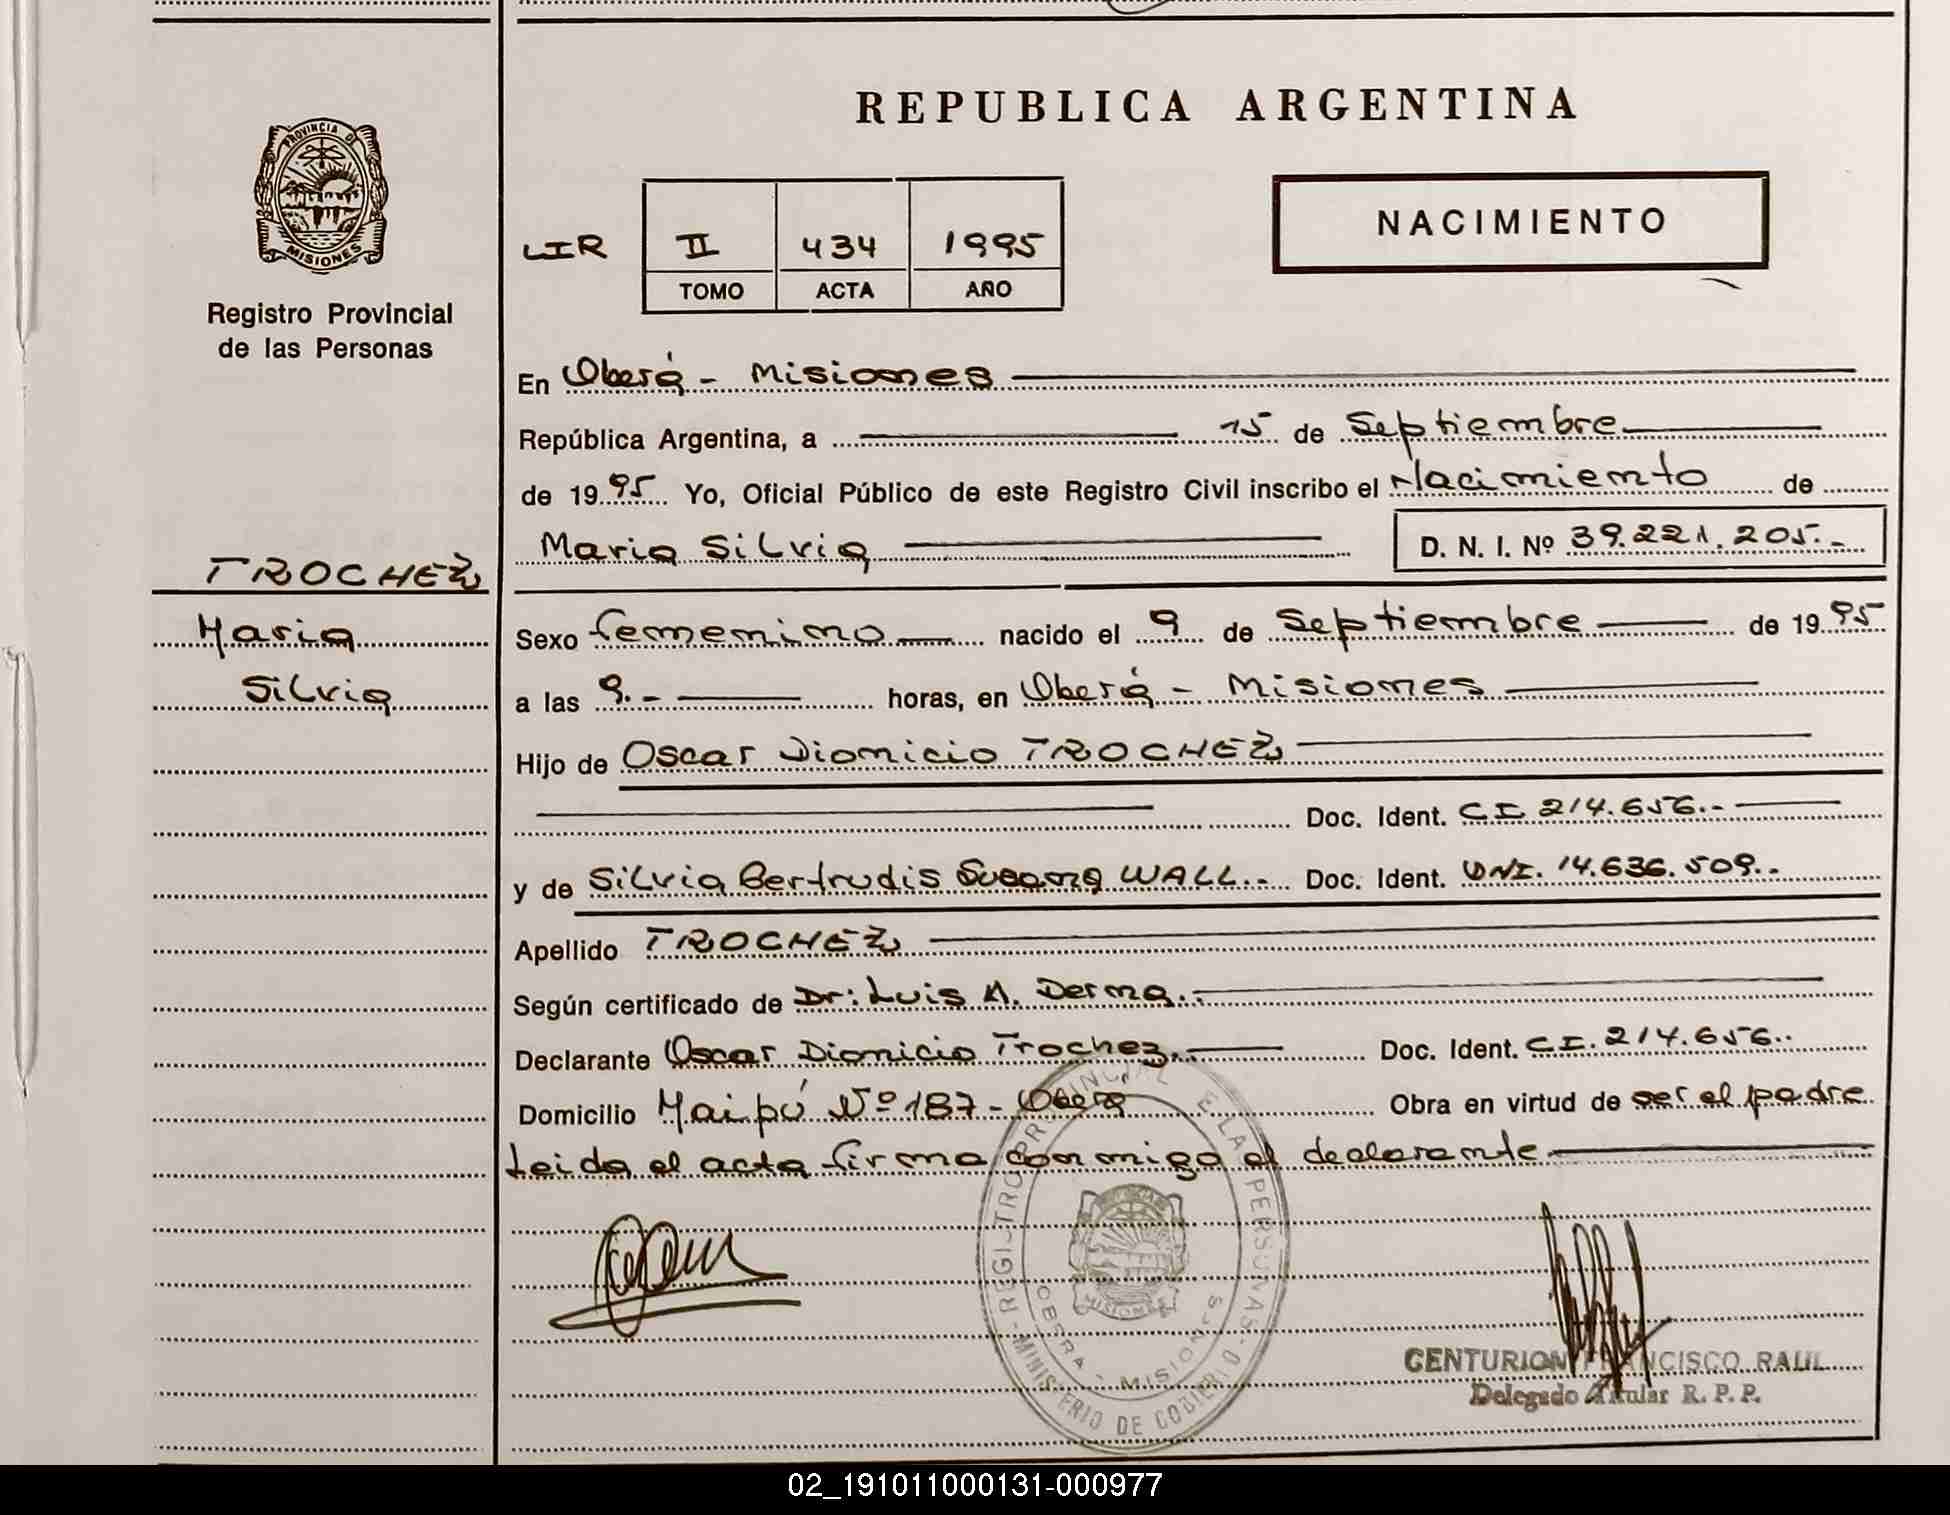 REPUBLICA ARGENTINA
PROVINCIA DE
MISIONES
Registro Provincial
de las Personas
NACIMIENTO
LIR II 434 1995
TOMO ACTA AÑO
En Oberá - Misiones
República Argentina, a 15 de Septiembre
de 1995 Yo, Oficial Público de este Registro Civil inscribo el Nacimiento de
Maria Silvia D. N. I. Nº 39.221.205.-
TROCHEZ
Maria
Silvia
Sexo femenino nacido el 9 de Septiembre de 1995
a las 9.- horas, en Oberá - Misiones
Hijo de Oscar Dionicio TROCHEZ
Doc. Ident. CI. 214.656.-
y de Silvia Gertrudis Susana WALL.- Doc. Ident. DNI. 14.636.509..
Apellido TROCHEZ
Según certificado de Dr: Luis A. Derna.
Declarante Oscar Dionicio Trochez.. Doc. Ident. CI. 214.656..
Domicilio Maipú Nº 187 - Oberá Obra en virtud de ser el padre
Leida el acta firma conmigo el declarante
REGISTRO PROVINCIAL DE LAS PERSONAS - MINISTERIO DE GOBIERNO
MISIONES
OBERA - MISIONES
CENTURION FRANCISCO RAUL
Delegado Titular R. P. P.
02_191011000131-000977